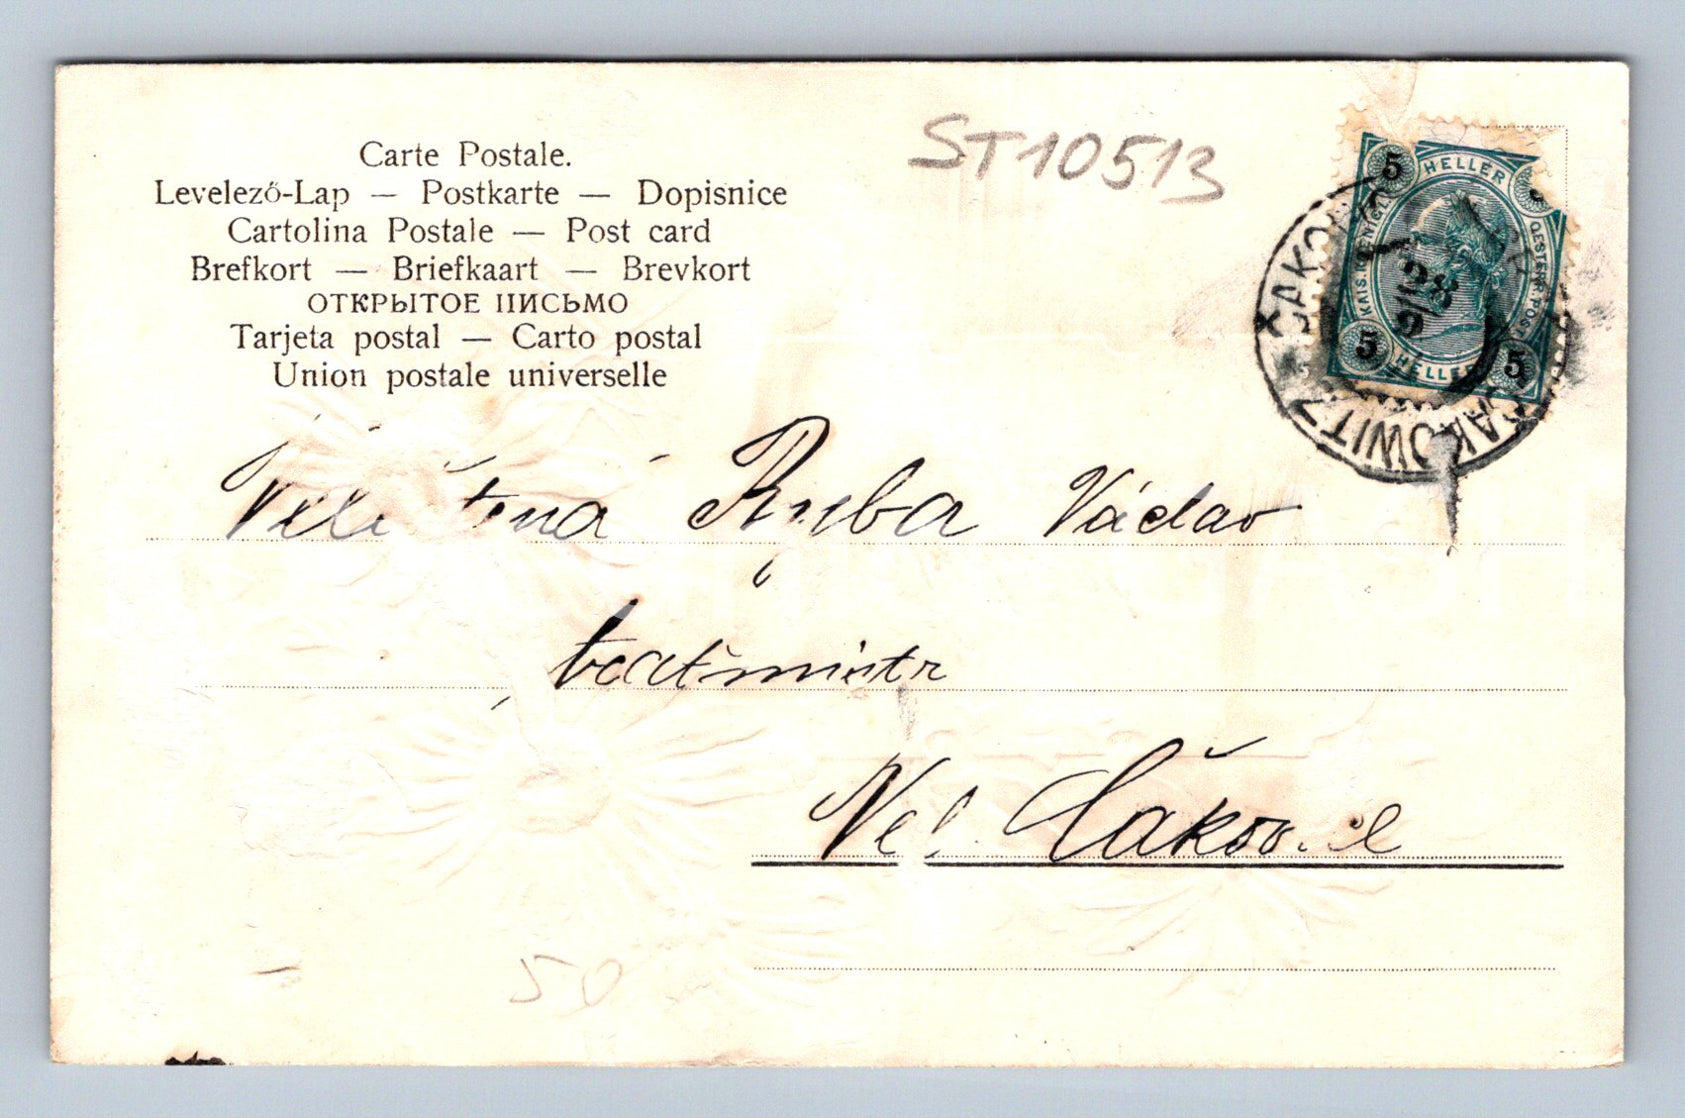 Carte Postale.
Levelező-Lap — Postkarte — Dopisnice
Cartolina Postale — Post card
Brefkort — Briefkaart — Brevkort
ОТКРЫТОЕ ПИСЬМО
Tarjeta postal — Carto postal
Union postale universelle
ST10513
5 HELLER 5
KAIS. KÖNIGL. OESTERR. POST
5 HELLER 5
28
9
ČAKOWITZ
Ryba Václav
Vel. Čakov
50